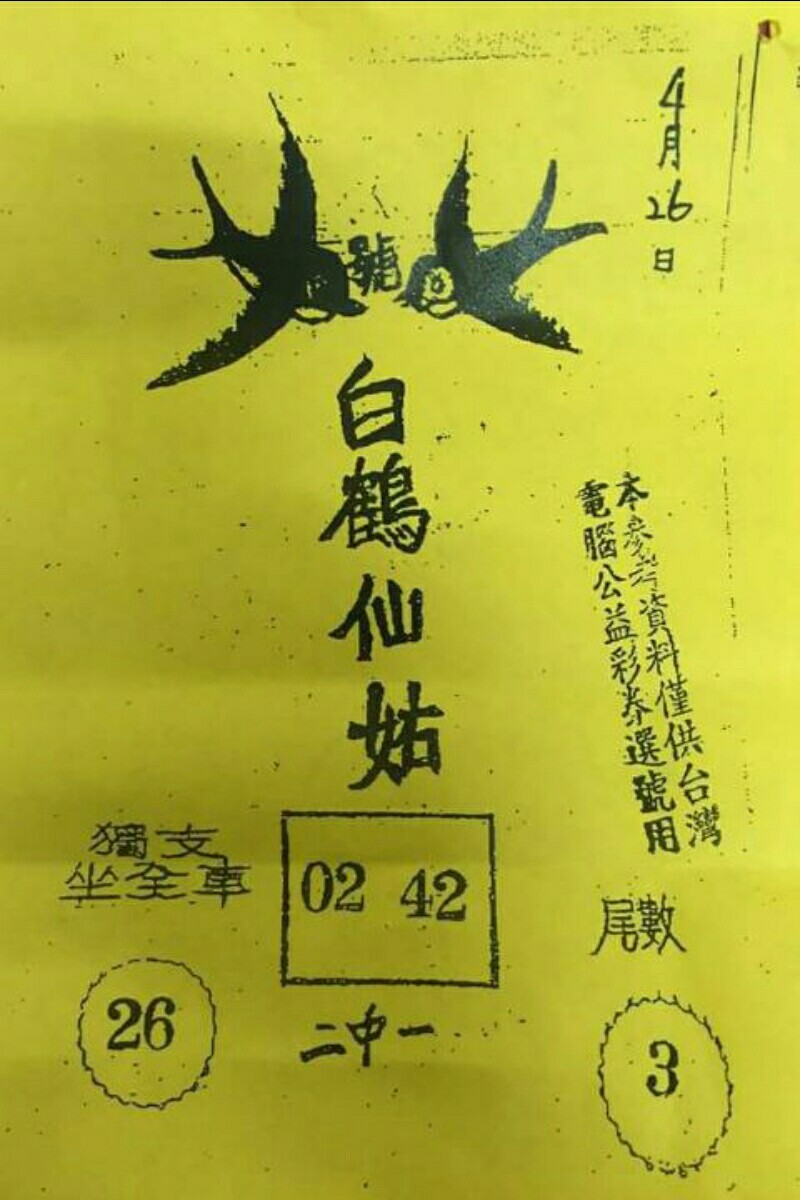 4月26日
號
白鶴仙姑
本參考資料僅供台灣
電腦公益彩券選號用
獨支
坐全車
26
02 42
二中一
尾數
3